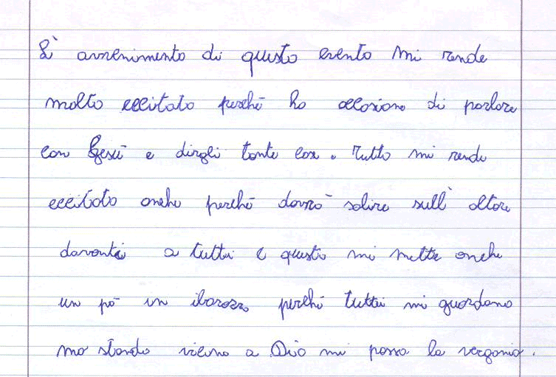 L' avvenimento di questo evento mi rende
molto eccitato perché ho occasione di parlare
con Gesù e dirgli tante cose. Tutto mi rende
eccitato anche perché dovrò salire sull' altare
davanti a tutti e questo mi mette anche
un pò in ibarazzo perché tutti mi guardano
ma stando vicino a Dio mi passa la vergonia.